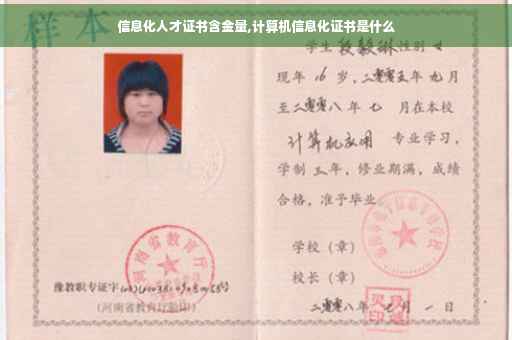 信息化人才证书含金量,计算机信息化证书是什么
样本
学生段毅琳性别女
现年16岁,二零零五年九月
至二零零八年七月在本校
计算机应用 专业学习,
学制三年,修业期满,成绩
合格,准予毕业
学校(章)
校长(章)
二零零八年 月一日
河南省教育厅
豫教职专证字
(河南省教育厅验印)